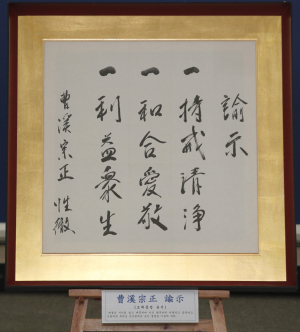 諭示
一 持戒清淨
一 和合愛敬
一 利益衆生
曹溪宗正 性徹
曹溪宗正 諭示